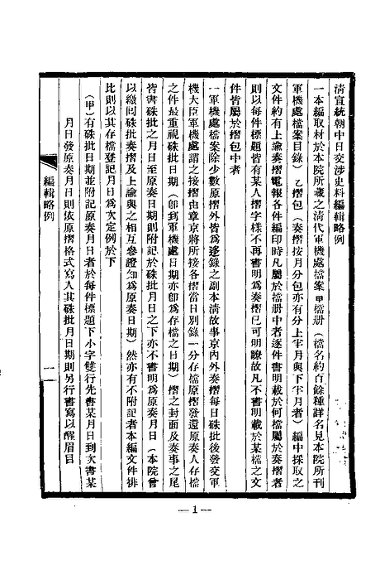 清宣統朝中日交涉史料編輯略例
一本編取材於本院所藏之清代軍機處檔案甲檔册（檔名約百餘種詳名見本院所刊
軍機處檔案目錄）乙摺包（奏摺按月分包亦有分上半月與下半月者）編中採取之
文件約有上諭奏摺電報各件編印時凡屬於檔册中者逐件書明載於何檔屬於奏摺者
則以每件標題皆有某人摺字樣不再書明爲奏摺已可明瞭故凡不書明載於某檔之文
件皆屬於摺包中者
一軍機處檔案除少數原摺外皆爲迻錄之副本清故事京內外奏摺每日硃批後發交軍
機大臣軍機處謂之接摺由章京將所接各摺當日別錄一分存檔原摺發還原奏人存檔
之件最重視硃批日期（卽到軍機處日期亦卽爲存檔之日期）摺之封面及奏事之尾
皆書硃批之月日至原奏日期則附記於硃批月日之下亦不書明爲原奏月日（本院曾
以繳囘硃批奏摺及上諭與之相互參證知爲原奏日期）然亦有不附記者本編文件排
比則以其存檔登記月日爲次定例於下
（甲）有硃批日期並附記原奏月日者於每件標題下小字雙行先書某月日到次書某
月日發原奏月日則依原摺格式寫入其硃批月日期則另行書寫以醒眉目
編輯略例
一
— 1 —